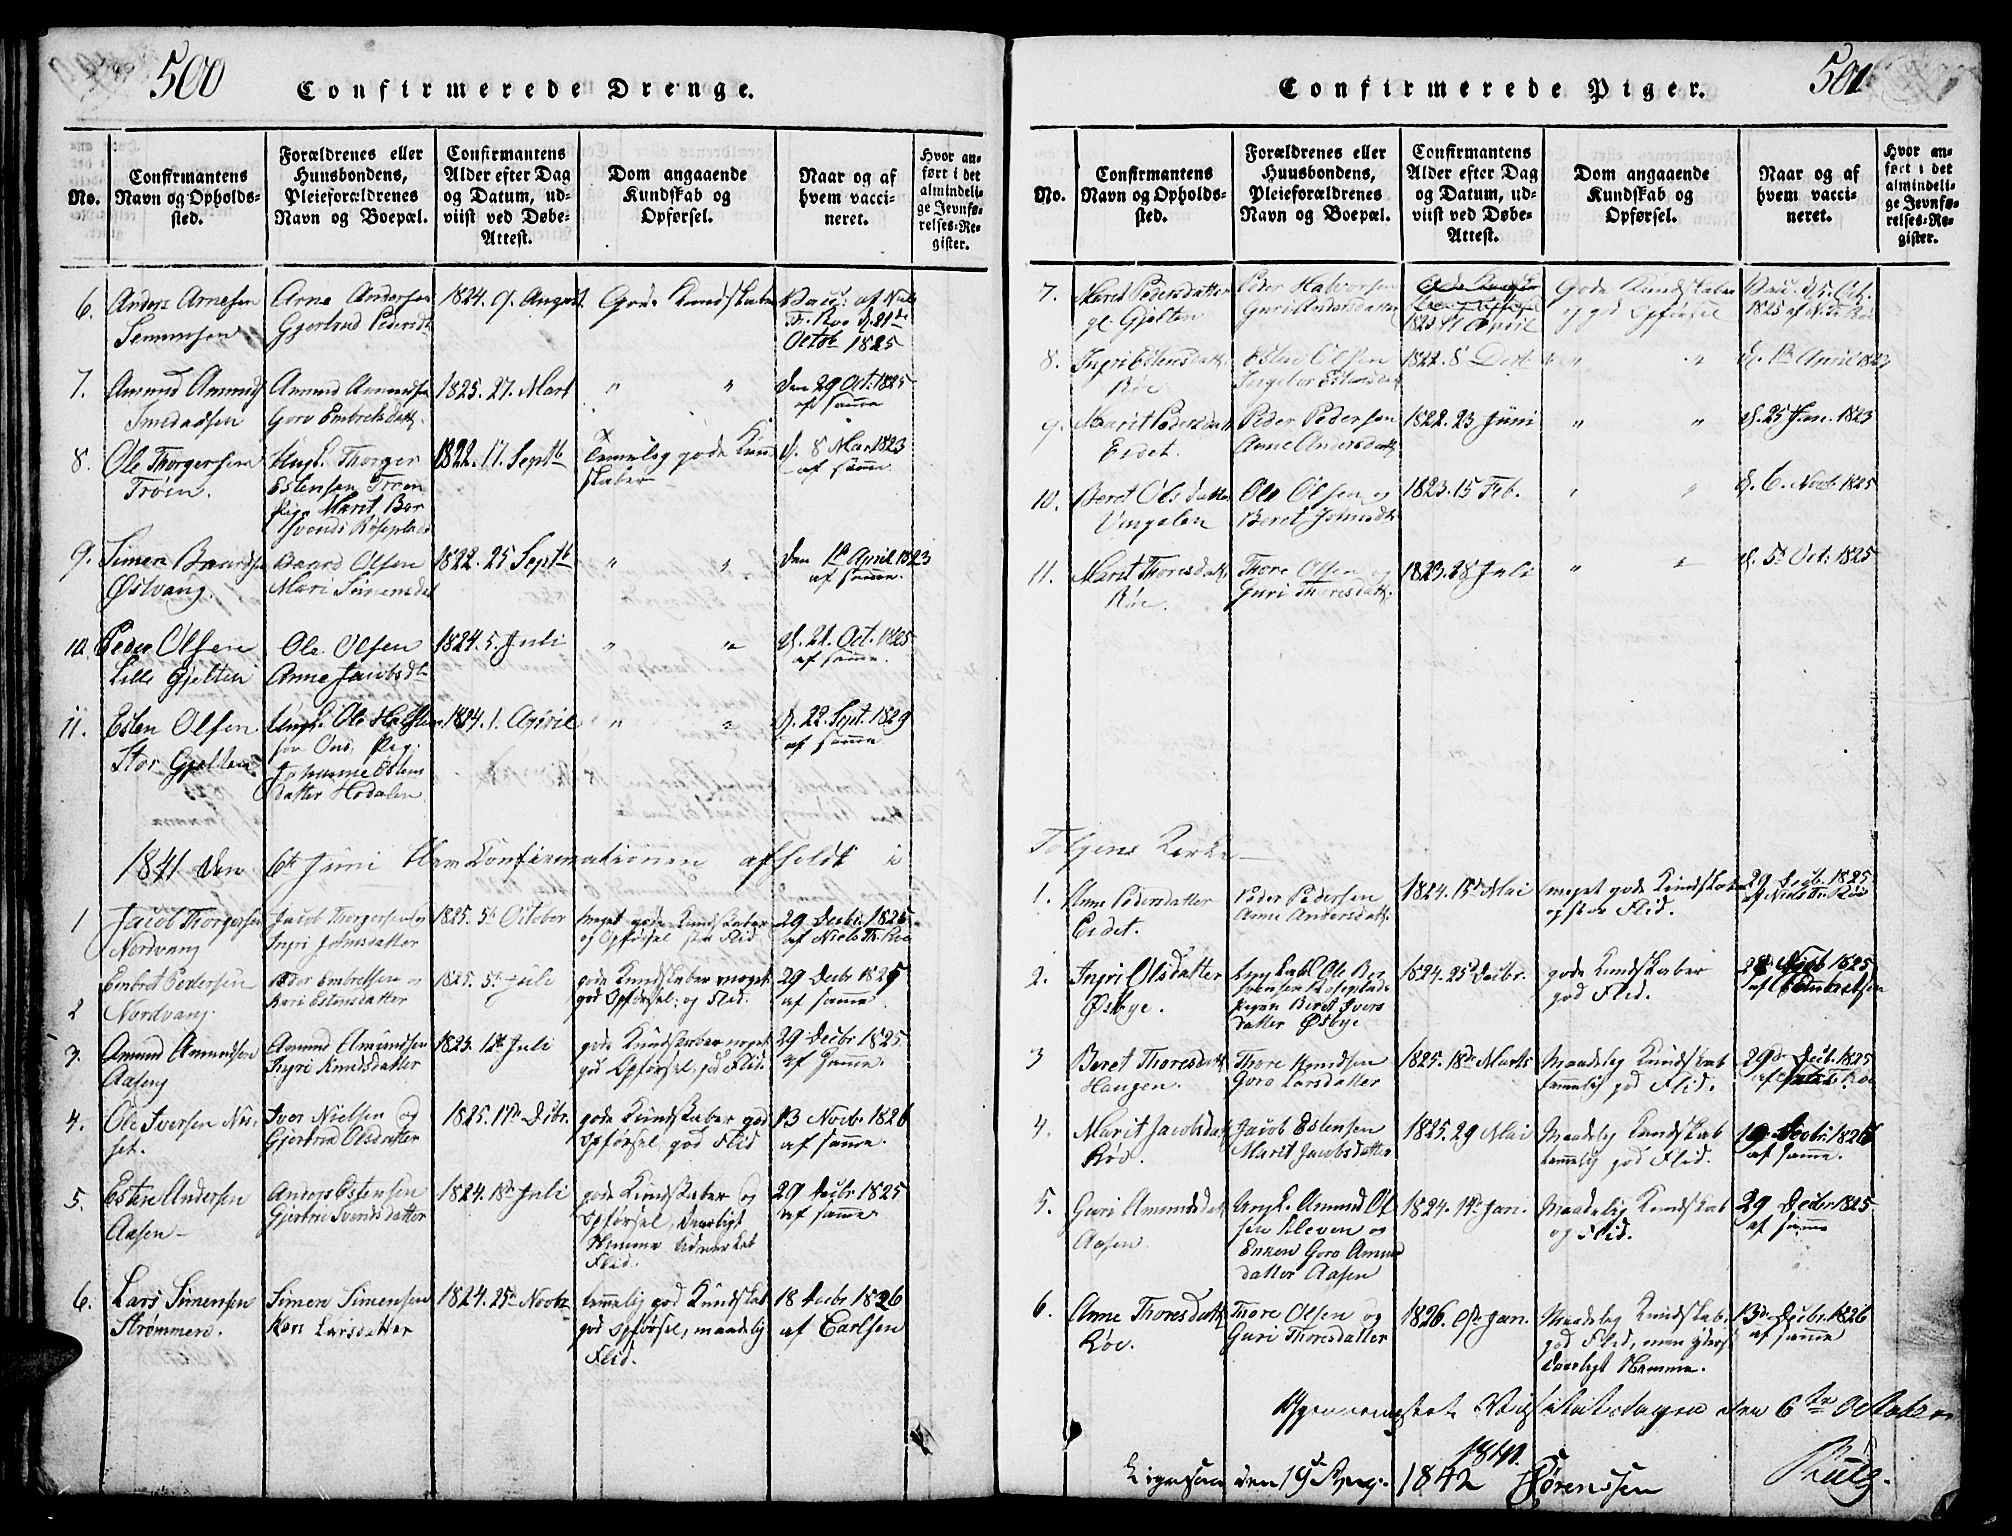 500
Confirmerede Drenge.
No.
Confirmantens Navn og Opholds-sted.
Forældrenes eller Huusbondens, Pleieforældrenes Navn og Boepæl.
Confirmantens Alder efter Dag og Datum, ud-viist ved Døbe-Attest.
Dom angaaende Kundskab og Opførsel.
Naar og af hvem vacci-neret.
Hvor an-ført i det almindeli-ge Jevnfø-relses-Re-gister.
6. Anders Arnesen Arne Andersen 1824. 9. August Gode Kundskaber Vacc: af Niels
Gjertrud Pedersdt Th. Roe d. 21de
Octob 1825
7. Amund Amunds Amund Amundsen 1825. 27. Mart " " den 29 Oct: 1825
Smedaasen Goro Embretsdatt. af samme
8. Ole Thorgersen Ungk. Thorger 1822. 17. Septb Temelig gode Kund d. 8 Mar 1823
Trøen. Estensen Trøen skaber af samme
Pige Marit Ber
9. Simen Baardsen Baard Olsen 1822. 25 Septb " " den 1te April 1823
Østvang. Mari Simensdat af samme.
10. Peder Olsen Ole Olsen 1824. 5. Juli " " d. 21. Oct. 1825
Lille Gjelten Anne Jacobsdt af samme.
11. Esten Olsen Ungk. Ole 1824. 1. April " " d. 22. Sept. 1829
Stor Gjelten Pig. af samme
Johanne Estens
datter Hodalen
1841 den 6te Juni blev Confirmationen afholdt i
1 Jacob Thorgersen Jacob Thorgersen og 1825. 5te October meget gode Kundskaber 29 Decbr 1825
Nordvang Ingri Johnsdatter og Opførsel stor Flid. af Niels Th. Roe
Embret Pedersen Peder Embretsen og 1825. 5te Juli gode Kundskaber meget 29 Decbr 1825
2 Nordvang. Kari Estensdatter god Opførsel og Flid. af samme
3. Amund Amundsen Amund Amundsen 1823. 12te Juli gode Kundskaber meget 29 Decbr 1825
Aaseng Ingri Knudsdatter god Opførsel, god Flid. af samme.
4. Ole Iversen Nes- Iver Nielsen og 1825. 17de Dcbr. gode Kundskaber god 13 Novbr 1826
set. Gjertrud Olsdatter Opførsel, god Flid af samme.
5. Esten Andersen Anders Estensen 1824. 18de Juli gode Kundskaber og 29 Decbr 1825
Aasen Gjertrud Svendsdatter Opførsel, daarligt af samme
Nemme udmærket
Flid.
6. Lars Simensen Simen Simensen 1824. 25de Novbr temmelig god Kundskab 18 Decbr 1826
Strømmen. Kari Larsdatter god Opførsel, maadelig af Carlsen
Flid.
501
Confirmerede Piger.
No.
Confirmantens Navn og Opholds-sted.
Forældrenes eller Huusbondens, Pleieforældrenes Navn og Boepæl.
Confirmantens Alder efter Dag og Datum, ud-viist ved Døbe-Attest.
Dom angaaende Kundskab og Opførsel.
Naar og af hvem vacci-neret.
Hvor an-ført i det almindeli-ge Jevnfø-relses-Re-gister.
7. Marit Pedersdatter Peder Halvorsen Gode Kundskaber
gl. Gjelten Guri Andersdatter 1823 11 April og god Opførsel 1825 af
8. Ingri Estensdatt. Esten Olsen 1822. 8 Dec " " d. 1te April 1823
Røe Ingebor Estensdat
9. Marit Pedersdatt Peder Pedersen 1822. 23 Juni " " d. 25 Jan. 1823
Eidet. Anne Andersdatt.
10. Beret Olsdatter Ole Olsen og 1823. 15 Feb. " " d. 6. Novb 1825
Vingelen Beret Johnsdt
11. Marit Thoresdatt. Thore Olsen og 1823. 28 Juli " " d. 5te Oct: 1825
Røe. Guri Thoresdatt.
Tolgens Kirke
1. Anne Pedersdatter Peder Pedersen 1824. 15de Mai meget gode Kundskaber 29 Decbr. 1825
Eidet. Anne Andersdatt. og stor Flid. af Niels Th. Roe
2. Ingri Olsdatter Ungkarl Ole Ber 1824. 25de Decbr. gode Kundskaber Novb 1825
Østbye. god Flid. af Embretsen
Pigen Beret Ivers
datter Østbye
3 Beret Thoresdatt Thore 1825. 18de Marts Maadelig Kundskab 29de Decb. 1825
Haugen. Goro Larsdatter temmelig god Flid.
4. Marit Jacobsdatt Jacob Estensen 1825. 29 Mai Maadelig Kundskab 1826
Røe. Marit Jacobsdatter temmelig god Flid. af samme.
5. Guri Amundsdatt Ungk. Amund Ol 1824. 14de Jan. Maadelig Kundskab 29 Decbr 1825
Aasen. sen Kleven og og Flid. af samme
Enken Goro Amund
datter Aasen
6. Anne Thoresdatt Thore Olsen og 1826. 9de Jan. Maadelig Kundskab, 13de Decbr. 1826
Røe. Guri Thoresdatter god Flid, men yderst af samme
daarligt Nemme.
den 6te October
1841.
Ligesaa den 19de Aug. 1842 Sørenssen